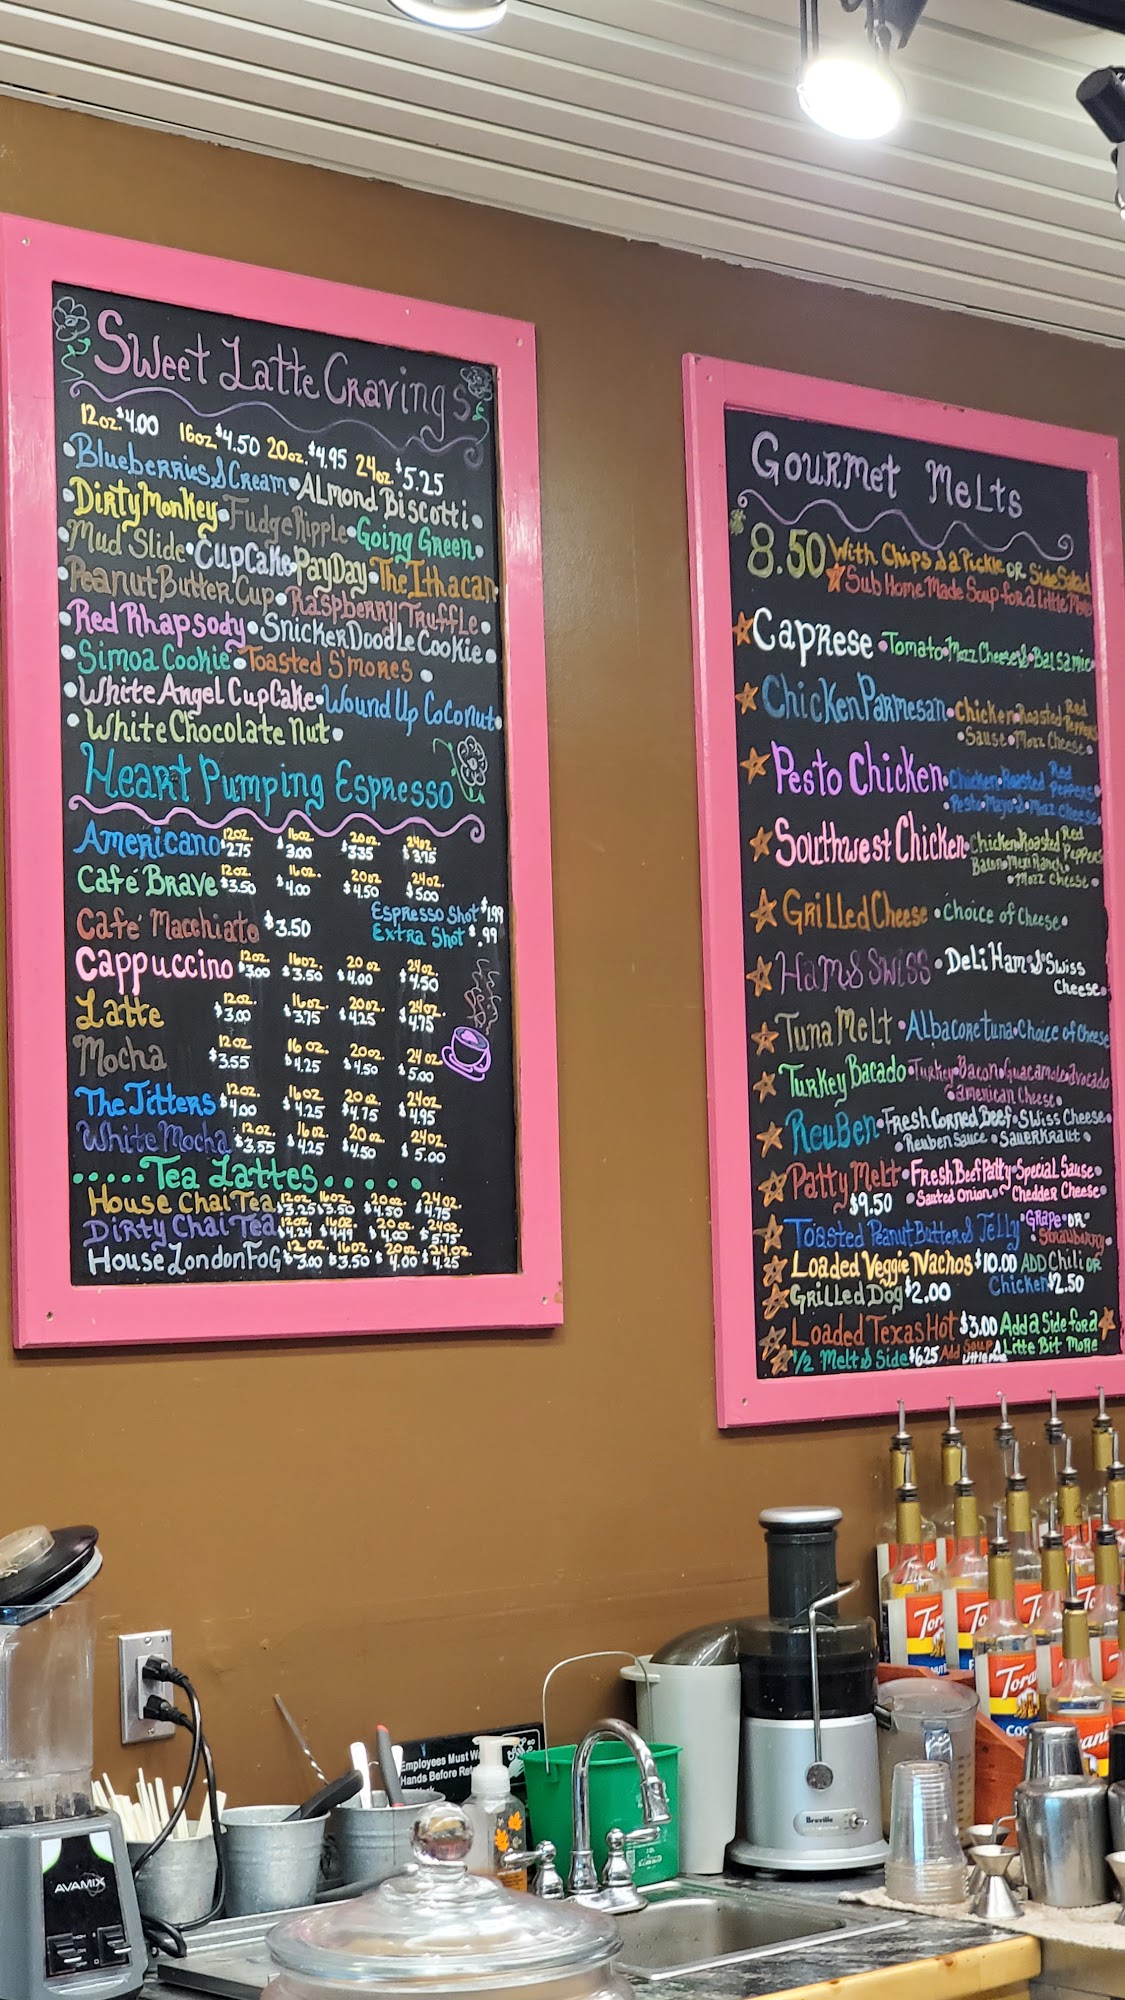 Sweet Latte Cravings
12oz. $4.00 16oz $4.50 20oz. $4.95 24oz. $5.25
• Blueberries & Cream • Almond Biscotti •
Dirty Monkey • Fudge Ripple • Going Green •
• Mud Slide • CupCake • PayDay • The Ithacan
• Peanut Butter Cup • Raspberry Truffle •
• Red Rhapsody • SnickerDoodle Cookie •
• Simoa Cookie • Toasted S'mores •
• White Angel CupCake • Wound Up Coconut •
• White Chocolate Nut •
Heart Pumping Espresso
Americano 12oz. $2.75 16oz. $3.00 20oz $3.35 24oz. $3.75
Café Brave 12oz. $3.50 16oz. $4.00 20oz $4.50 24oz. $5.00
Café Macchiato $3.50
Espresso Shot $1.99
Extra Shot $.99
Cappuccino 12oz. $3.00 16oz. $3.50 20oz $4.00 24oz. $4.50
Latte 12oz. $3.00 16oz. $3.75 20oz $4.25 24oz $4.75
Mocha 12oz $3.55 16oz. $4.25 20oz. $4.50 24oz $5.00
The Jitters 12oz. $4.00 16oz $4.25 20oz. $4.75 24oz $4.95
White Mocha 12oz. $3.55 16oz. $4.25 20oz $4.50 24oz. $5.00
..... Tea Lattes .....
House Chai Tea 12oz. $3.25 16oz $3.50 20oz. $4.50 24oz. $4.75
Dirty Chai Tea 12oz. $4.24 16oz $4.49 20oz. $4.00 24oz. $5.75
House London Fog 12oz. $3.00 16oz. $3.50 20oz. $4.00 24oz. $4.25
Gourmet Melts
$8.50 With Chips & a Pickle or Side Salad
Sub Home Made Soup for a Little More
Caprese • Tomato • Mozz Cheese & • Balsamic •
Chicken Parmesan • Chicken • Roasted Red Peppers
• Sause • Mozz Cheese •
Pesto Chicken • Chicken • Roasted Red Peppers •
• Pesto • Mayo & • Mozz Cheese •
Southwest Chicken • Chicken • Roasted Red Peppers
Bacon • Mexi Ranch •
• Mozz Cheese •
Grilled Cheese • Choice of Cheese •
Ham & Swiss • Deli Ham & • Swiss
Cheese •
Tuna Melt • Albacore tuna • Choice of Cheese
Turkey Bacado • Turkey • Bacon • Guacamole • avocado
• american Cheese •
Reuben • Fresh Corned Beef • Swiss Cheese •
• Reuben Sauce • Sauerkraut •
Patty Melt • Fresh Beef Patty • Special Sause •
$9.50 • Sauted Onion • Chedder Cheese •
Toasted Peanut Butter & Jelly "Grape "or"
• Strawberry •
Loaded Veggie Nachos $10.00 ADD Chili or
Chicken $2.50
Grilled Dog $2.00
Loaded Texas Hot $3.00 Add a Side for a
Little Bit More
1/2 Melt & Side $6.25 Add Soup A
Little more
Employees Must
Hands Before
AVAMIX
Breville
Torani